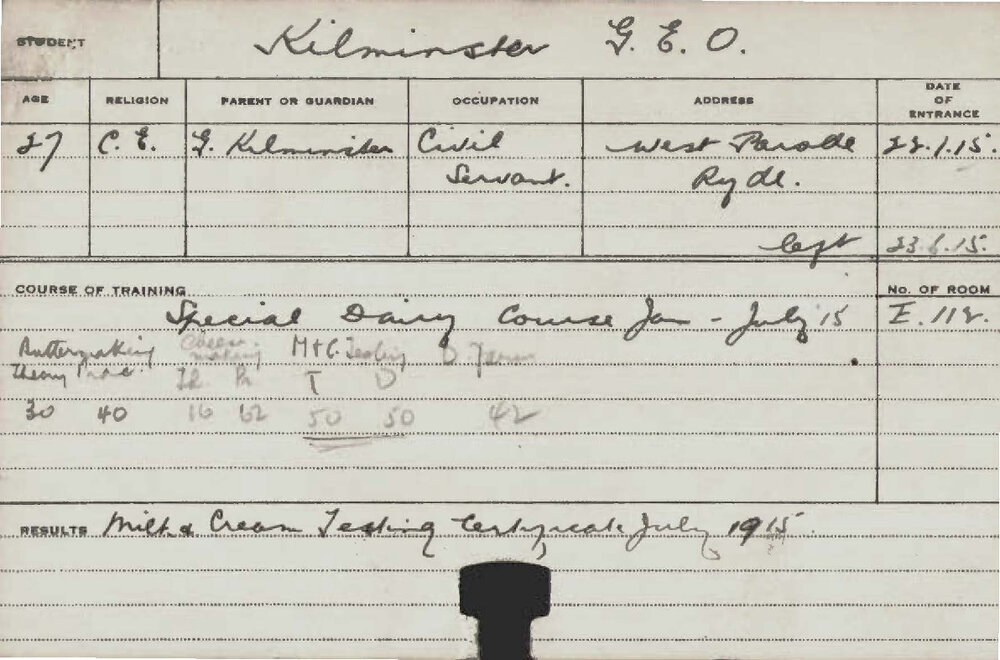 STUDENT Kilminster G. E. O.
AGE RELIGION PARENT OR GUARDIAN OCCUPATION ADDRESS DATE OF ENTRANCE
27 C. E. G. Kilminster Civil West Parade 22.1.15.
Servant. Ryde.
left 23.6.15.
COURSE OF TRAINING No. OF ROOM
Special Dairy Course Jan - July 15 E. 112.
Buttermaking Cheese-making M+C. Testing D.
Theory Prac. Th Pr T D
30 40 16 62 50 50 42
RESULTS Milk & Cream Testing Certificate July 1915.